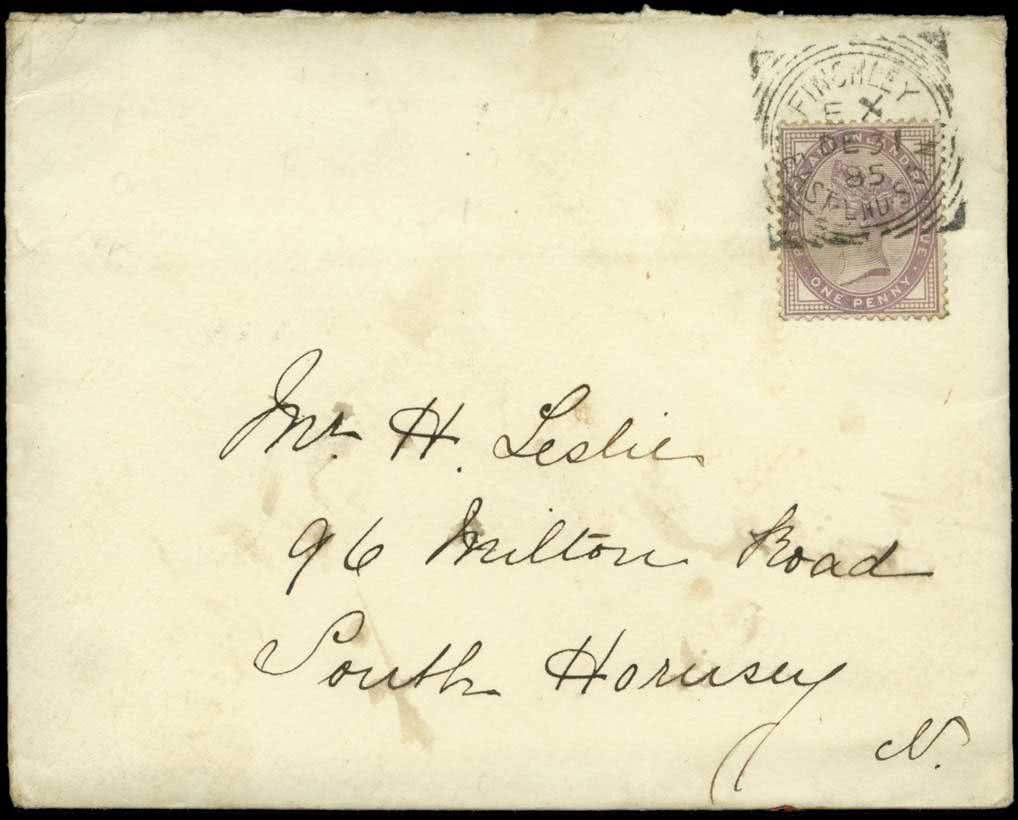 FINCHLEY
E X
DE 31
95
ONE PENNY
Mr. H. Leslie
96 Milton Road
South Hornsey
N.